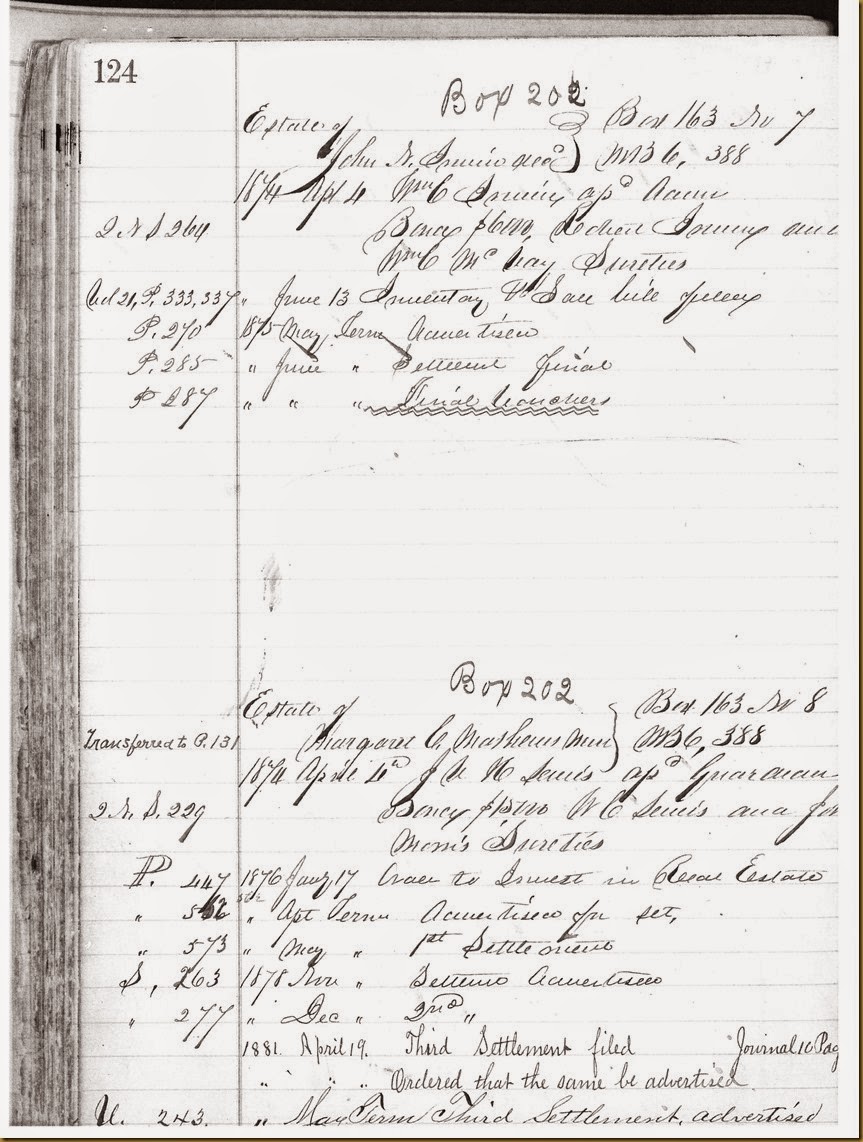 124
Box 202
Estate of
John N. Irwin decd } Box 163 No 7
WB 6, 388
1874 Apl 4 Wm C Irwin apd Admr
2 N S 264 Bond $600, Robert Irwin and
Wm C McVay Sureties
Vol 21, P. 333, 337 " June 13 Inventory & Sale bill filed
P. 270 1875 May Term Advertised
P. 285 " June " Settlement final
P 287 " " " Final Vouchers
Box 202
Estate of
Transferred to P. 131 Margaret C. Mathews Minr } Box 163 No 8
WB 6, 388
1874 April 4th J V H Lewis apd Guardian
2 N. S. 229 Bond W C Lewis and
Morris Sureties
P. 447 1876 Jany 17 Order to Invest in Real Estate
" " Apl Term Advertised for set,
" 573 " May " 1st Settlement
S, 263 1878 Nov " Settlmt Advertised
" 277 " Dec " 2nd "
1881. April 19. Third Settlement filed Journal 10 Pag
" " " Ordered that the same be advertised
U. 243. " May Term Third Settlement, advertised